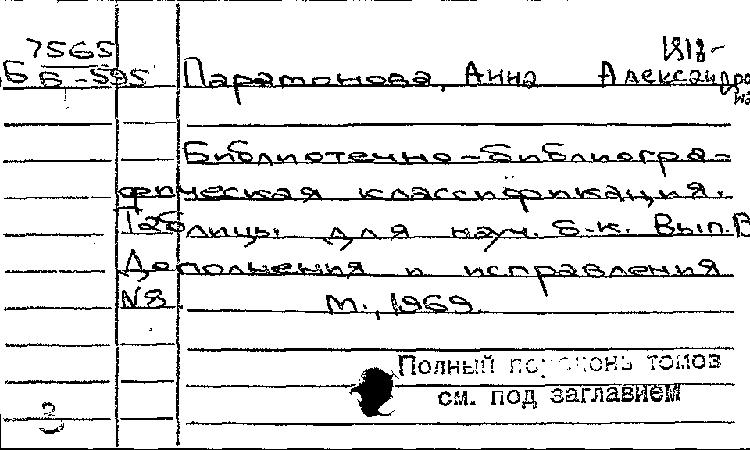 7565
Б Б-595
1818-
Парамонова, Анна Александровна
Библиотечно-библиогра-
фическая классификация.
Таблицы для науч. б-к. Вып. В
Дополнения и исправления
№8 М., 1969.
Полный перечень томов
см. под заглавием
3